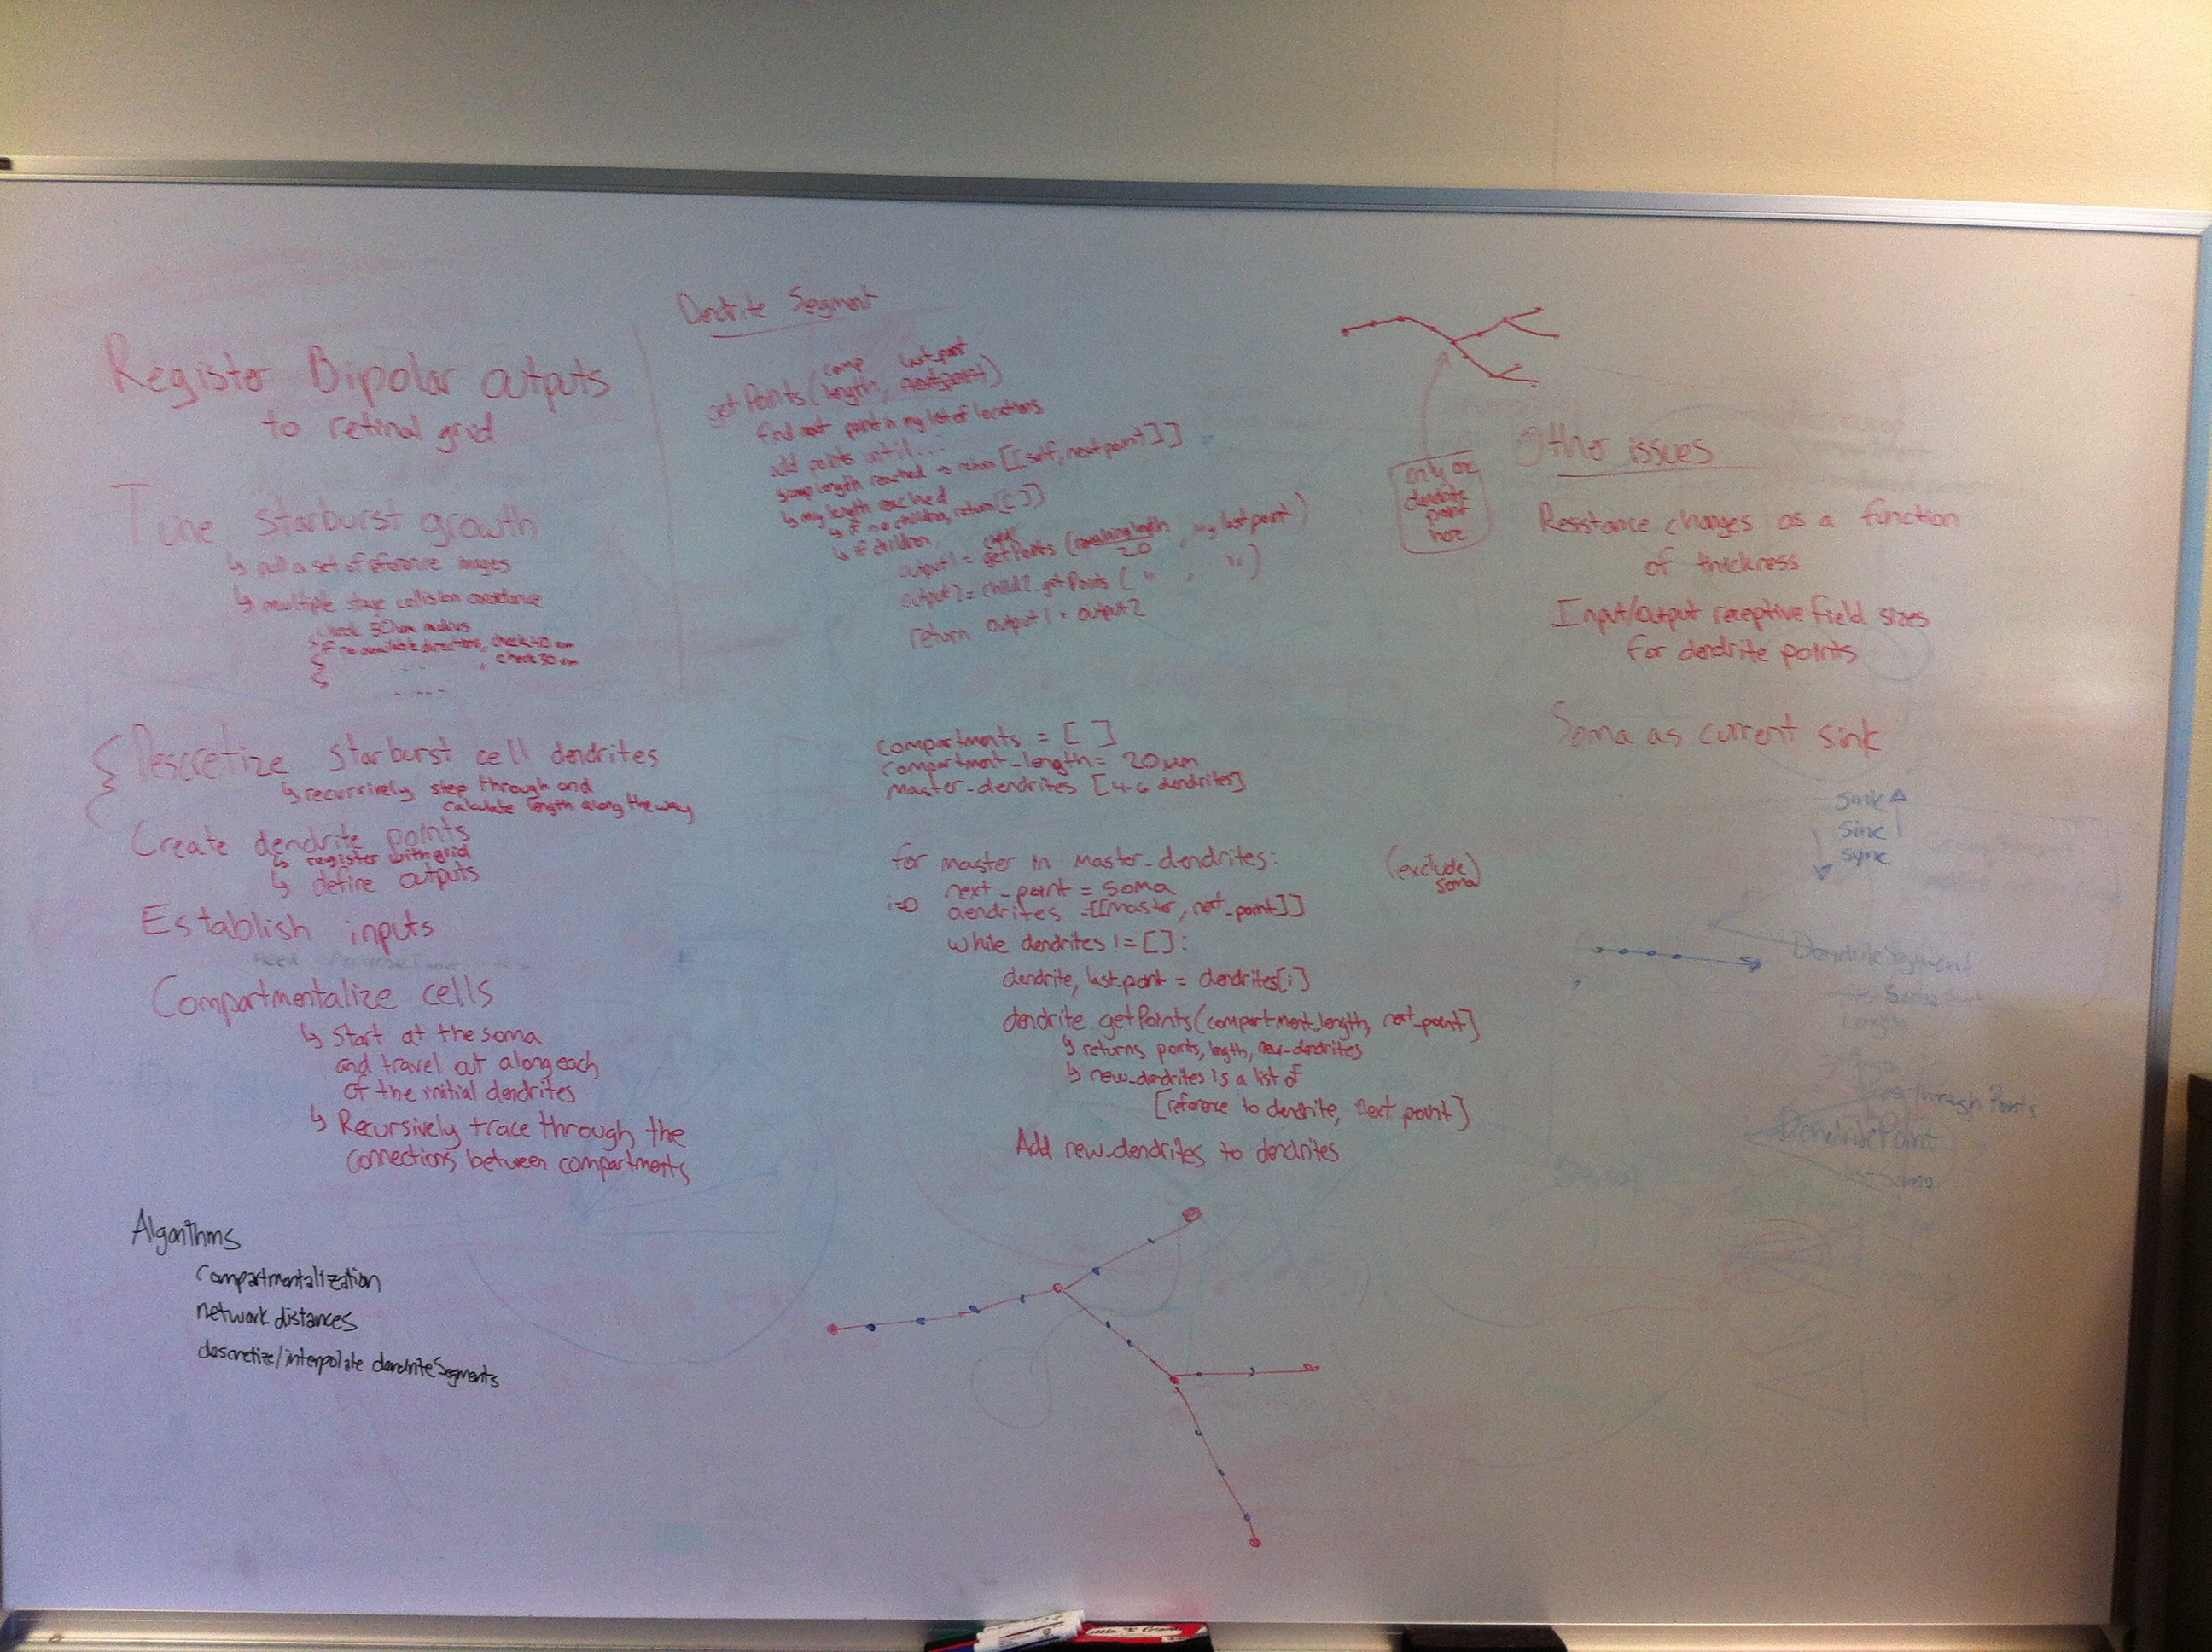 Register Bipolar outputs
to retinal grid
Tune starburst growth
↳ pull a set of reference images
↳ multiple stage collision avoidance
check 50um radius
if no available directions, check 40 um
, check 30 um
.....
{ Descretize starburst cell dendrites
↳ recursively step through and
calculate length along the way
Create dendrite points
↳ register with grid
↳ define outputs
Establish inputs
Compartmentalize cells
↳ Start at the soma
and travel out along each
of the initial dendrites
↳ Recursively trace through the
connections between compartments
Algorithms
Compartmentalization
network distances
descretize/interpolate dendriteSegments
Dendrite Segment
comp last point
getPoints(length, )
find next point in my list of locations
add points until...
↳ comp length reached → return [[self, nextpoint]]
↳ my length reached
↳ if no children, return([])
↳ if children
output1 = getPoints ( , my last point)
20
output2 = child2.getPoints ( " , " )
return output1 + output2
compartments = [ ]
compartment_length = 20um
master_dendrites [4-6 dendrites]
for master in master_dendrites:
(exclude soma)
next_point = soma
i=0 dendrites = [[master, next_point]]
while dendrites != []:
dendrite, last_point = dendrites[i]
dendrite.getPoints(compartment_length, next_point]
↳ returns points, length, new_dendrites
↳ new_dendrites is a list of
[reference to dendrite, next point]
Add new_dendrites to dendrites
only one
dendrite
point
here
Other issues
Resistance changes as a function
of thickness
Input/output receptive field sizes
for dendrite points
Soma as current sink
Sink
Sinc
Sync
DendriteSegment
Length
Through Points
DendritePoint